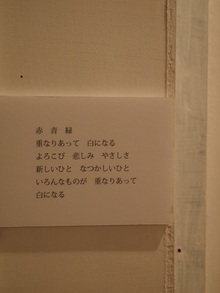 赤　青　緑
重なりあって　白になる
よろこび　悲しみ　やさしさ
新しいひと　なつかしいひと
いろんなものが　重なりあって
白になる